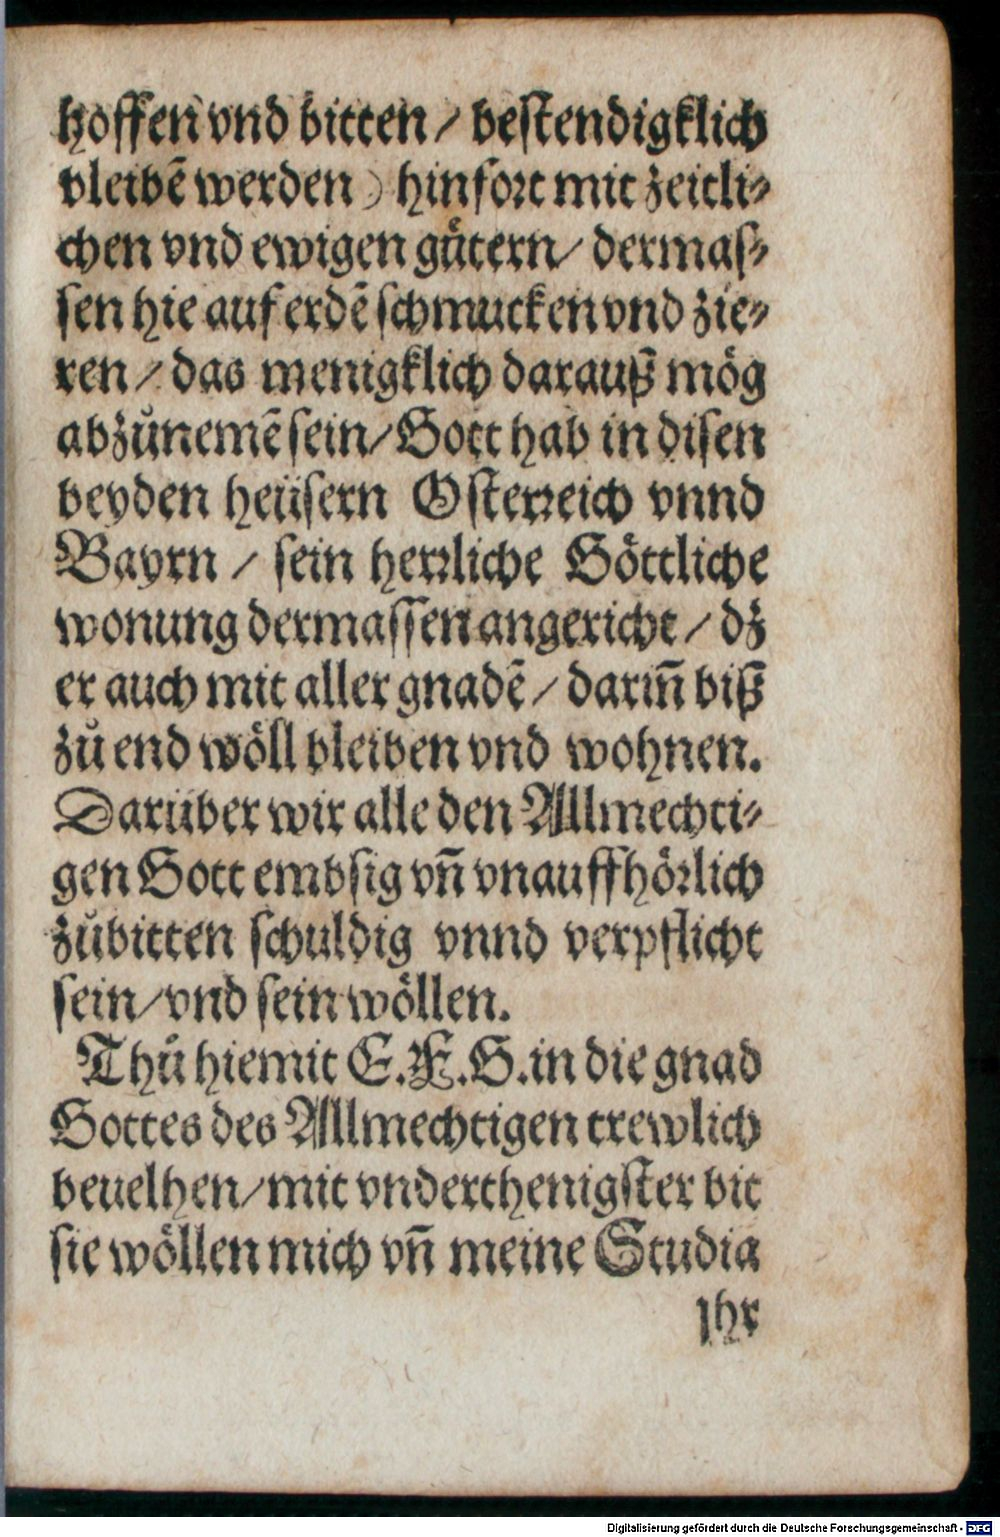 hoffen vnd bitten / bestendigklich
bleibẽ werden ) hinfort mit zeitli⸗
chen vnd ewigen guͤtern / dermas⸗
sen hie auf erdẽ schmucken vnd zie⸗
ren / das menigklich darauß moͤg
abzuͦnemẽ sein / Gott hab in disen
beyden heüsern Osterreich vnnd
Bayrn / sein herrliche Goͤttliche
wonung dermassen angericht / dz
er auch mit aller gnadẽ / dariñ biß
zuͦ end woͤll bleiben vnd wohnen.
Darüber wir alle den Allmechti⸗
gen Gott embsig vñ vnauffhoͤrlich
zuͦbitten schuldig vnnd verpflicht
sein / vnd sein woͤllen.
Thuͦ hiemit E. F. G. in die gnad
Gottes des Allmechtigen trewlich
beuelhen / mit vnderthenigster bit
sie woͤllen mich vñ meine Studia
jhr
Digitalisierung gefördert durch die Deutsche Forschungsgemeinschaft - DFG